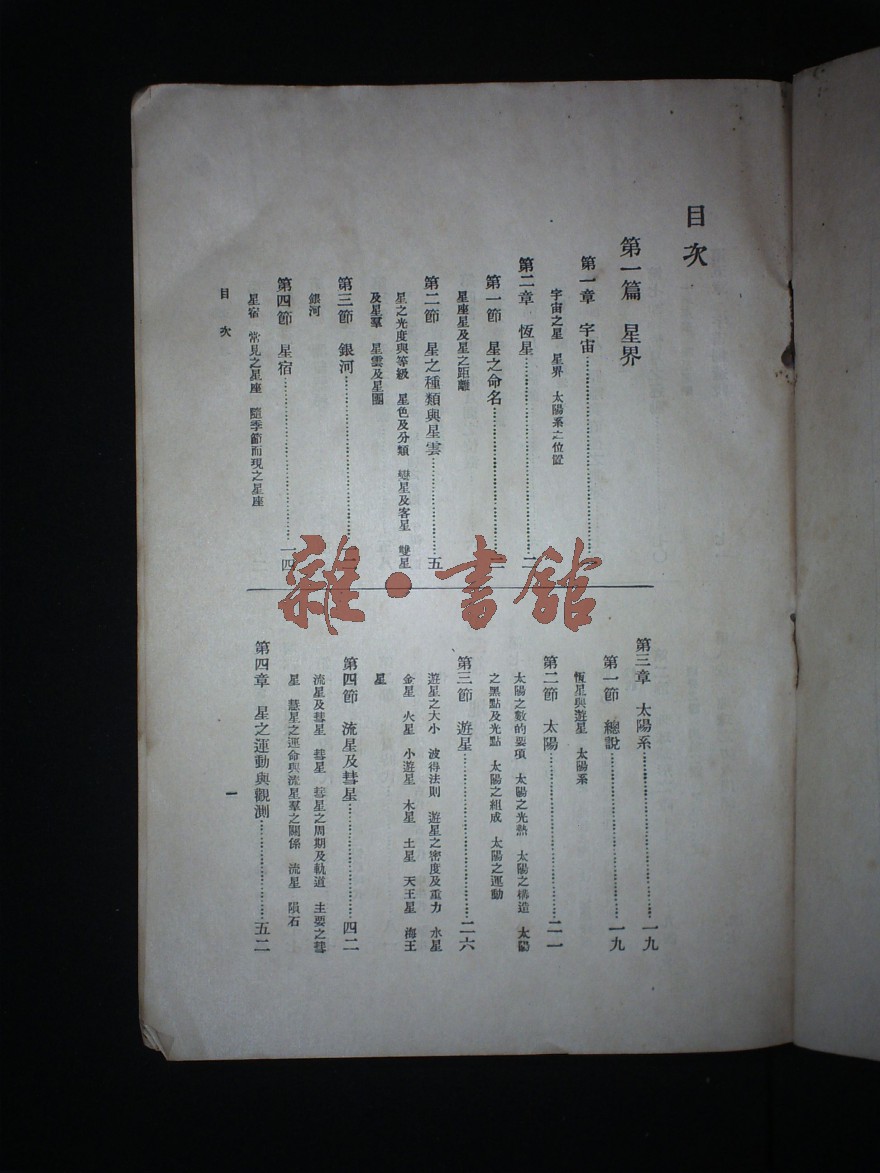 目次
第一篇 星界
第一章 宇宙
宇宙之星 星界 太陽系之位置
第二章 恆星……二
第一節 星之命名
星座星及星之距離
第二節 星之種類與星雲……五
星之光度與等級 星色及分類 變星及客星 雙星
及星羣 星雲及星團
第三節 銀河
銀河
第四節 星宿……一四
星宿 常見之星座 隨季節而現之星座
第三章 太陽系……一九
第一節 總說……一九
恆星與遊星 太陽系
第二節 太陽……二一
太陽之數的要項 太陽之光熱 太陽之構造 太陽
之黑點及光點 太陽之組成 太陽之運動
第三節 遊星……二六
遊星之大小 波得法則 遊星之密度及重力 水星
金星 火星 小遊星 木星 土星 天王星 海王
星
第四節 流星及彗星……四二
流星及彗星 彗星 彗星之周期及軌道 主要之彗
星 慧星之運命與流星羣之關係 流星 隕石
第四章 星之運動與觀測……五二
目次
一
雜·書館